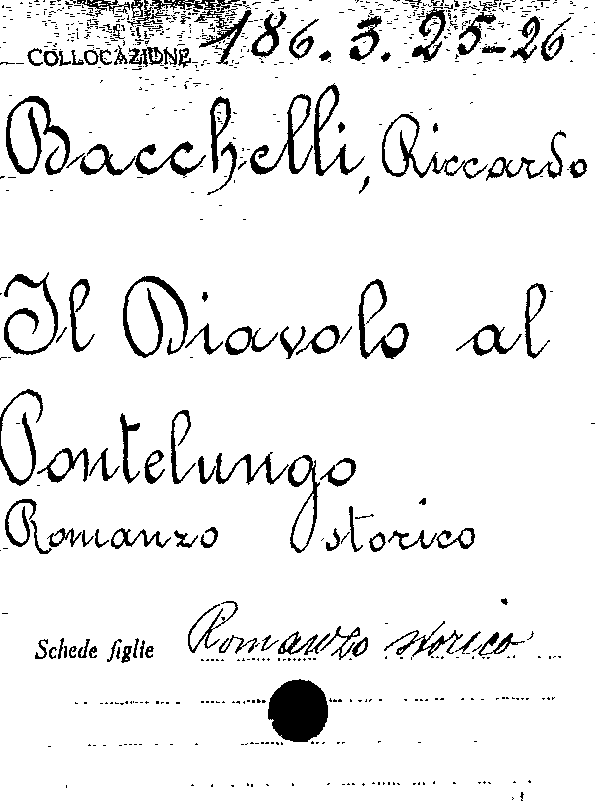 COLLOCAZIONE 186.3.25-26
Bacchelli, Riccardo
Il Diavolo al
Pontelungo
Romanzo storico
Schede figlie Romanzo storico